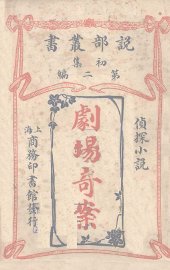 說部叢書
初集
第二編
偵探小說
劇場奇案
上海商務印書館發行